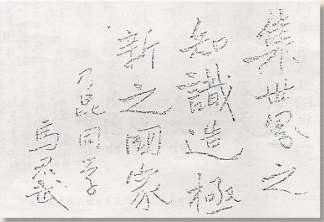 集世界之
知識造極
新之國家
昆同学
馬君武